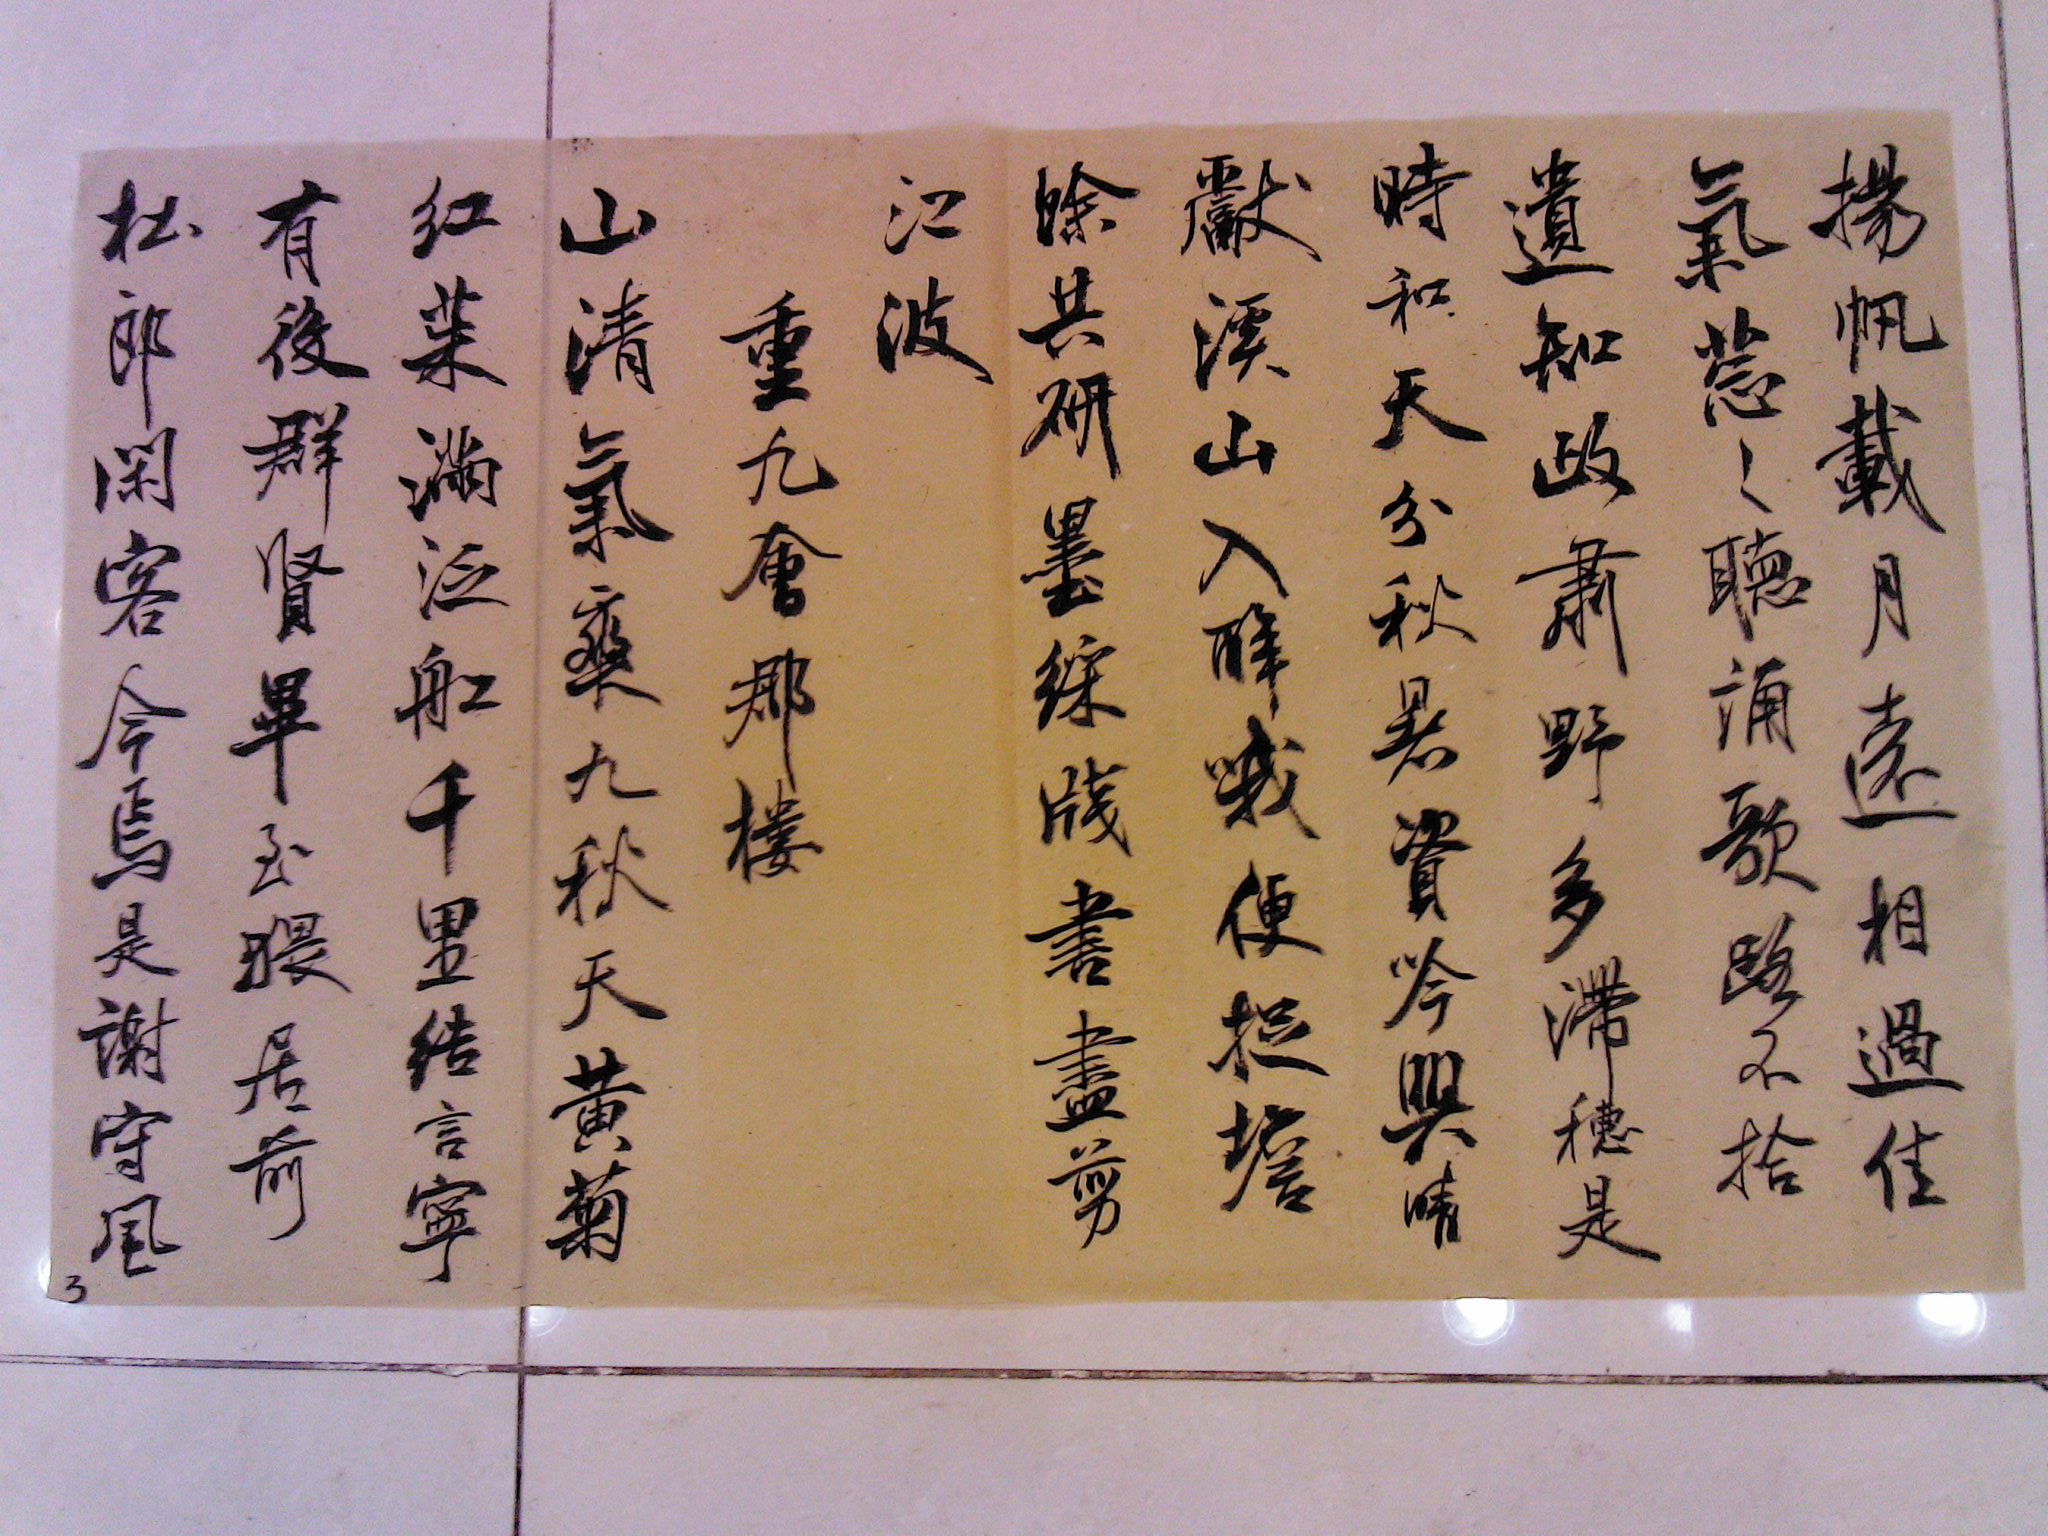 揚帆載月遠相過佳
氣葱々聽誦歌路不捨
遺知政肅野多滯穗是
時和天分秋暑資吟興晴
獻溪山入醉哦便捉蟾
蜍共研墨綵牋書盡剪
江波
重九會郡樓
山清氣爽九秋天黃菊
紅茱滿泛船千里結言寧
有後群賢畢至猥居前
杜郎閑客今焉是謝守風
3